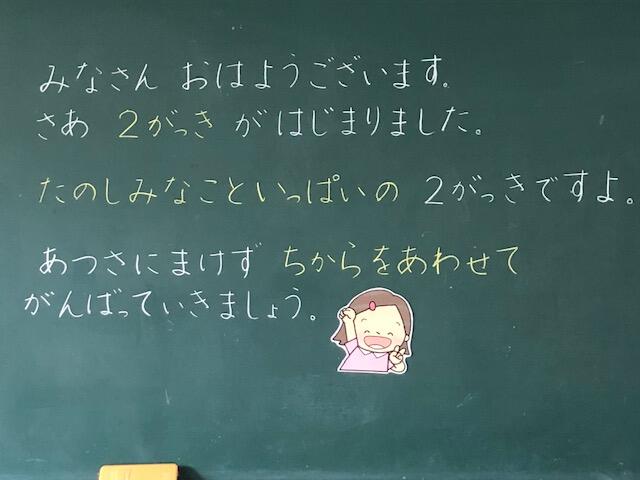 みなさん おはようございます。
さあ 2がっき がはじまりました。
たのしみなこといっぱいの 2がっきですよ。
あつさにまけず ちからをあわせて
がんばっていきましょう。